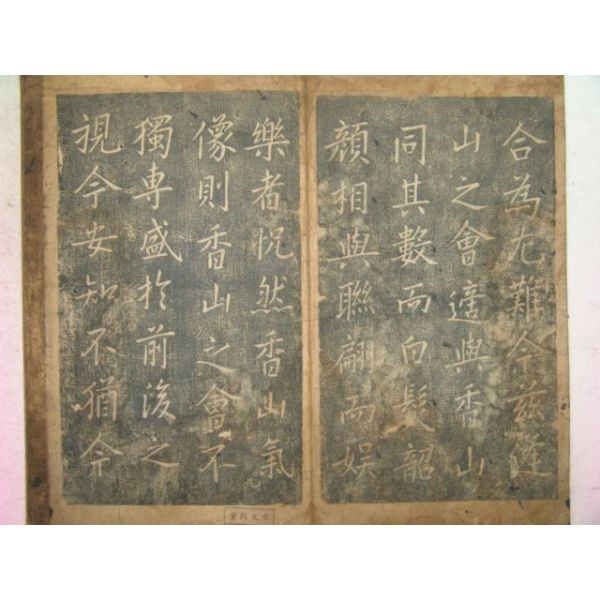 合為尤難今茲
山之會適與香山
同其數而白髮韶
顏相與聯翩而娛
樂者怳然香山氣
九
像則香山之會不
獨專盛於前後之
視今安知不猶今